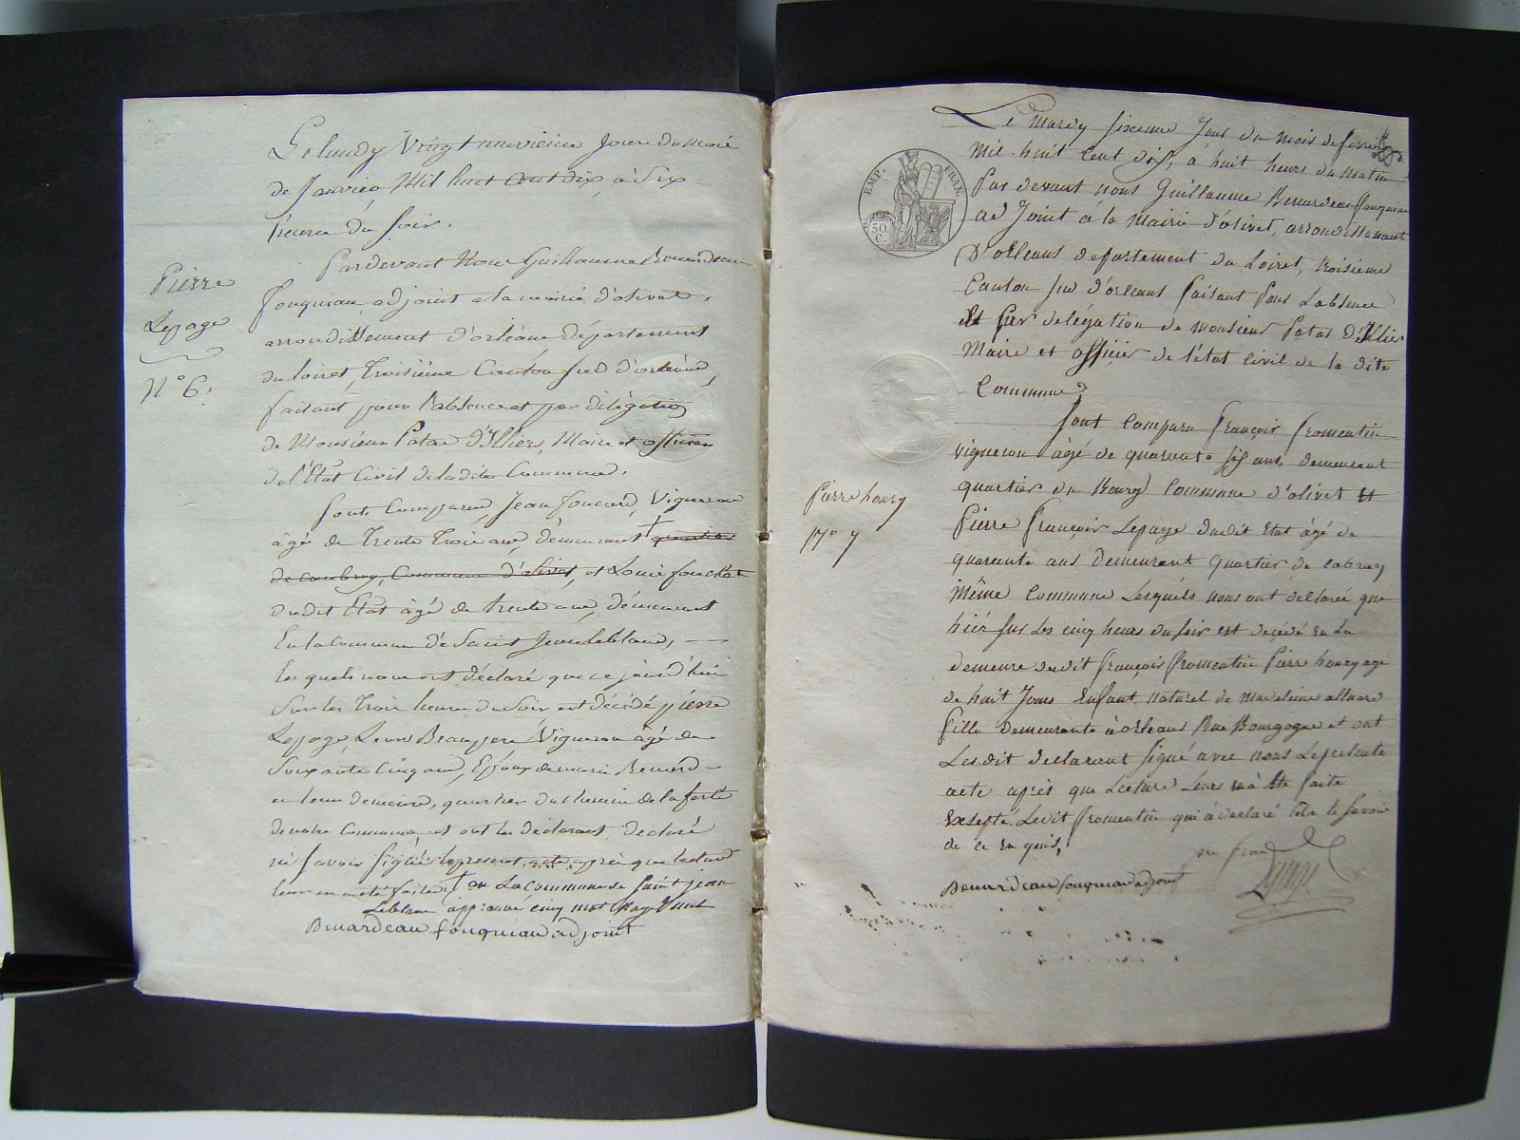 Pierre
Lepage
N° 6.
Le lundy Vingt neuvieme Jour du mois
de Janvier Mil huit Cent dix, à Six
heures du Soir.
Pardevant Nous Guillaume Benardeau
fouqueau adjoint a la mairie d'olivet,
arrondissement d'orléans département
du loiret, Troisième Canton sud d'orléans,
faisant pour l'absence et par délégation
de Monsieur Patas D'Illiers, Maire et officier
de l'Etat Civil de la dite Commune.
Sont Comparus, Jean foucard, Vigneron
âgé de Trente Trois ans, demeurant † quartier
de coubray, Commune d'olivet, et Louis fouchet
dudit Etat âgé de trente ans, demeurant
En la commune de Saint Jean le blanc,
les quels nous ont déclaré que ce jourd'hui
Sur les Trois heures du Soir est décédé pierre
Lepage, Leur Beaupere Vigneron âgé de
Soixante Cinq ans, Epoux de marie Benard
en leur demeure, quartier du chemin de la ferté
de notre Commune et ont les déclarants déclaré
ne savoir signer le present acte après que lecture
leur en a été faite † en La commune de Saint jean
Leblanc approuvé cinq mot Rayé nuls
Benardeau fouqueau adjoint
EMP. FRAN.
50
C.
Le Mardy sixieme Jour du mois de fevrier
mil-huit Cent dix, à huit heures du matin
Par devant nous Guillaume Benardeau fouqueau
adjoint à la Mairie d'olivet, arrondissement
D'orleans departement du Loiret, troisieme
Canton sud d'orleans faisant Pour Labsence
Et Par delegation de monsieur Patas D'Illiers
Maire et officier de l'état Civil de la dite
Commune
Pierre houry
N° 7
Sont Comparu françois fromentin
vigneron âgé de quarante six ans demeurant
quartier du Bourg Commune d'olivet Et
Pierre françois Lepage dudit Etat âgé de
quarante ans Demeurant quartier de cabray
même Commune Lesquels nous ont declaré que
hier sur les cinq heures du soir est decédé En La
demeure dudit françois fromentin Pierre houry agé
de huit Jours Enfant naturel de madeleine allard
fille Demeurante à orleans Rue Bourgogne et ont
Lesdit declarant signé avec nous Le presente
acte après que Lecture Leur en a Eté faite
Excepté Ledit fromentin qui à declaré ne le savoir
de ce En quis,
Benardeau fouqueau adjoint